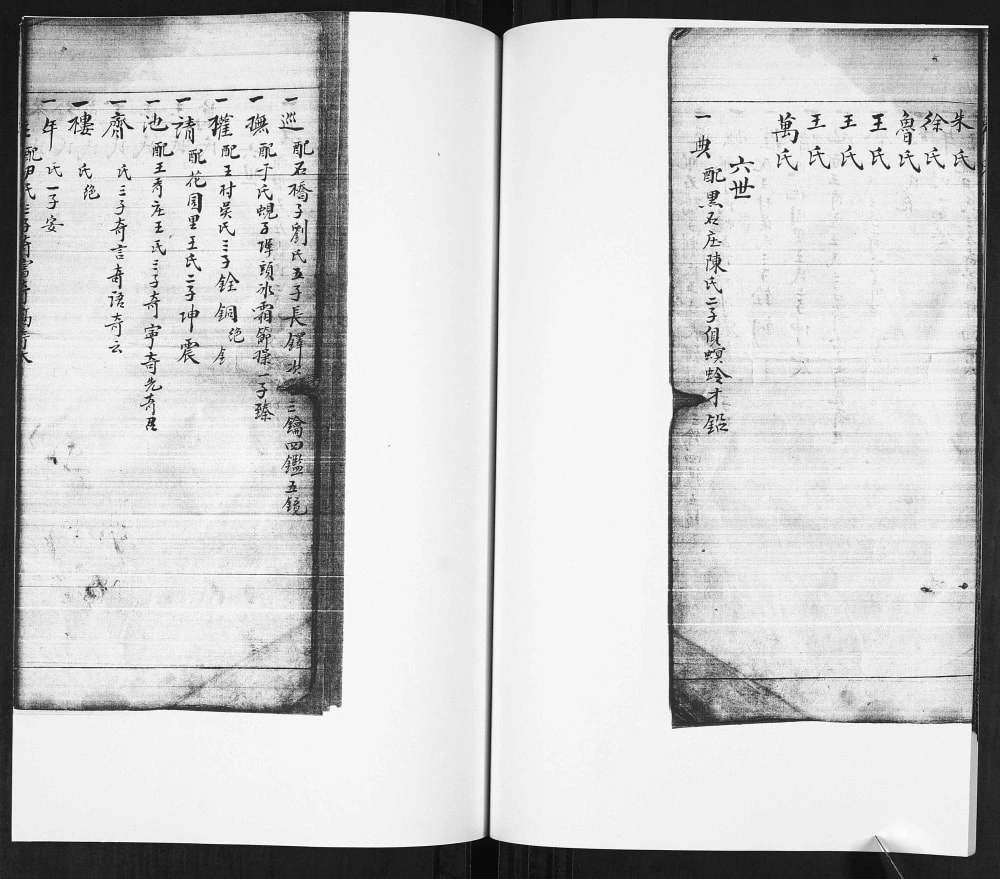 朱氏
徐氏
魯氏
王氏
王氏
王氏
萬氏
六世
一典 配黑石庄陳氏二子俱螟蛉才鉛
一巡 配石橋子劉氏五子長鐸 三鑰四鑑五鏡
一撫 配于氏蜆子墠頭冰霜節操一子臻
一權 配王村吳氏三子銓銅絕
一請 配花园里王氏二子坤震
一池 配王秀庄王氏三子奇寧奇先奇
一齊 氏三子奇言奇語奇云
一樓 氏絕
一年 氏一子安
配尹氏三